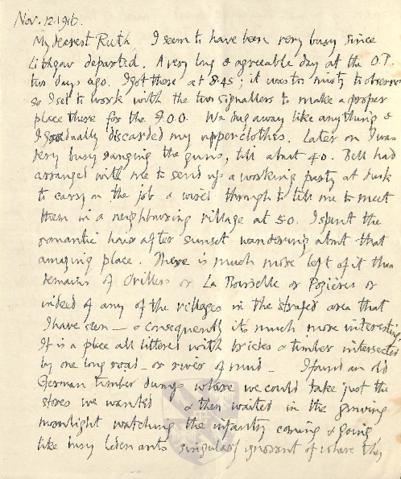 Nov. 12. 1916.
My dearest Ruth I seem to have been very busy since
Lithgow departed. A very long & agreeable day at the O.P.
two days ago. I got there at 8.45; it was too misty to observe
so I set to work with the two signallers to make a proper
place there for the F.O.O. We dug away like anything &
I gradually discarded my upper clothes. Later on I was
very busy ranging the guns, till about 4.0. Bell had
arranged with me to send up a working party at dusk
to carry on the job & wired through to tell me to meet
them in a neighbouring village at 5.0. I spent the
romantic hour after sunset wandering about that
amazing place. There is much more left of it than
remains of Ovillers or La Boisselle or Pozières or
indeed of any of the villages in the strafed area that
I have seen — & consequently its much more interesting.
It is a place all littered with bricks & timber intersected
by one long road – or river of mud – I found an old
German timber dump where we could take just the
stores we wanted & then waited in the growing
moonlight watching the infantry coming & going
like busy ants singularly ignorant of where they